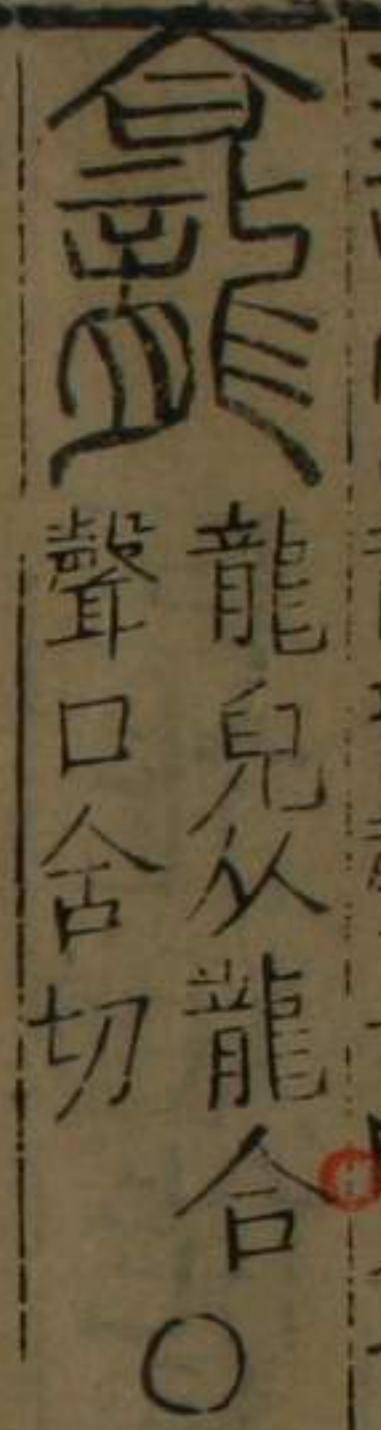 龕
龍皃从龍合
聲口含切
○